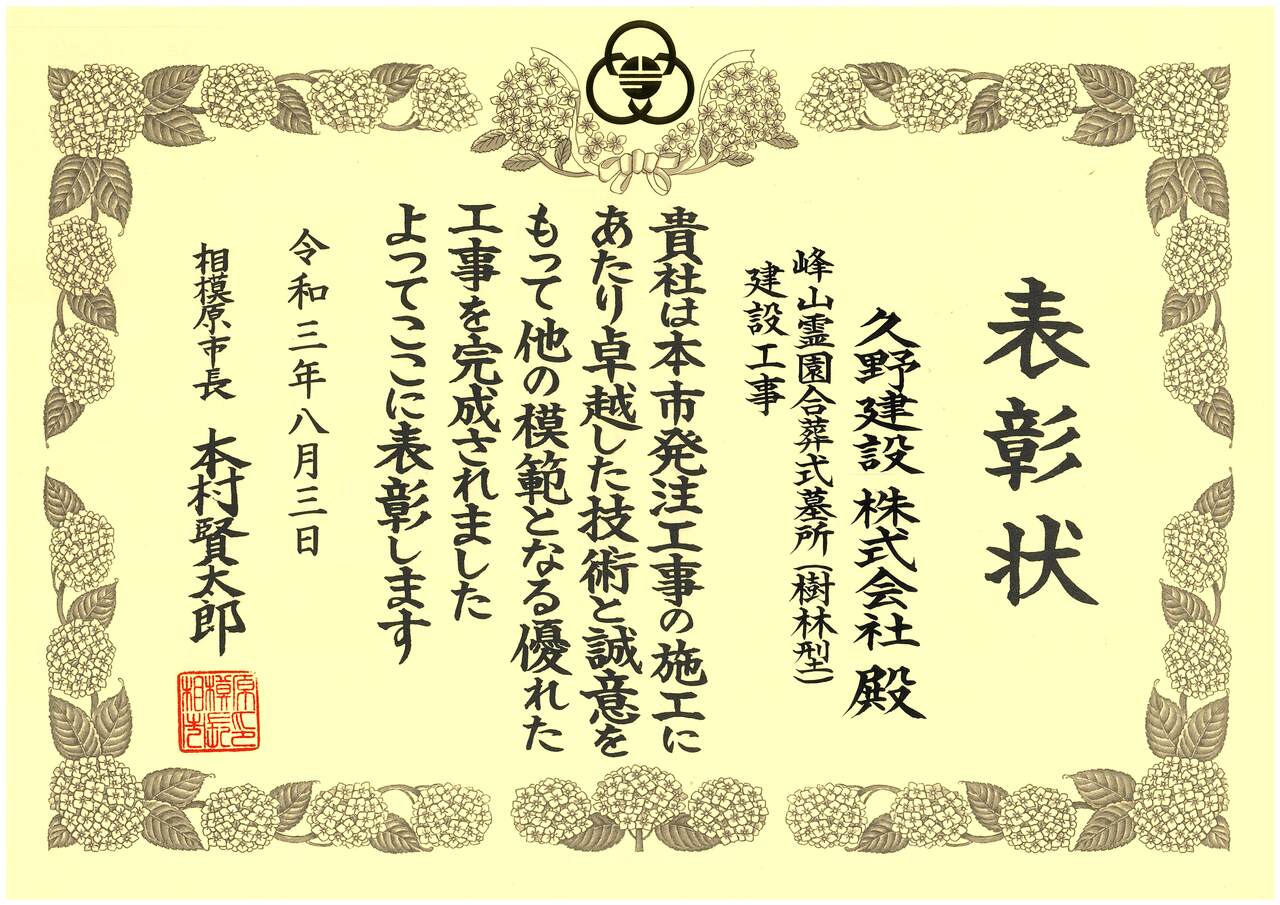 表彰状
久野建設株式会社殿
峰山霊園合葬式墓所(樹林型)
建設工事
貴社は本市発注工事の施工に
あたり卓越した技術と誠意を
もって他の模範となる優れた
工事を完成されました
よってここに表彰します
令和三年八月三日
相模原市長 本村賢太郎